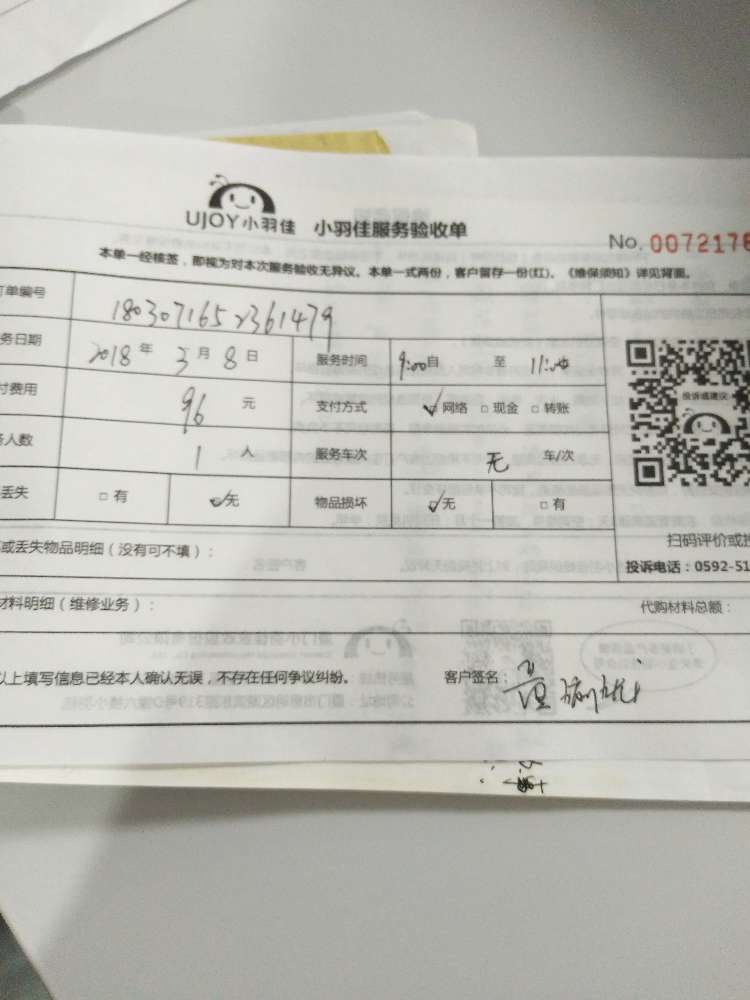 UJOY小羽佳 小羽佳服务验收单
No. 0072178
本单一经核签，即视为对本次服务验收无异议。本单一式两份，客户留存一份(红)、《维保须知》详见背面。
单编号 1803071652361479
务日期 2018 年 3 月 8 日 服务时间 9:00 自 至 11:00
投诉或建议
付费用 96 元 支付方式 ☑网络 □现金 □转账
人数 1 人 服务车次 无 车/次
丢失 □有 ☑无 物品损坏 ☑无 □有
扫码评价或投
或丢失物品明细（没有可不填）：
投诉电话：0592-51
材料明细（维修业务）： 代购材料总额：
以上填写信息已经本人确认无误，不存在任何争议纠纷。 客户签名：